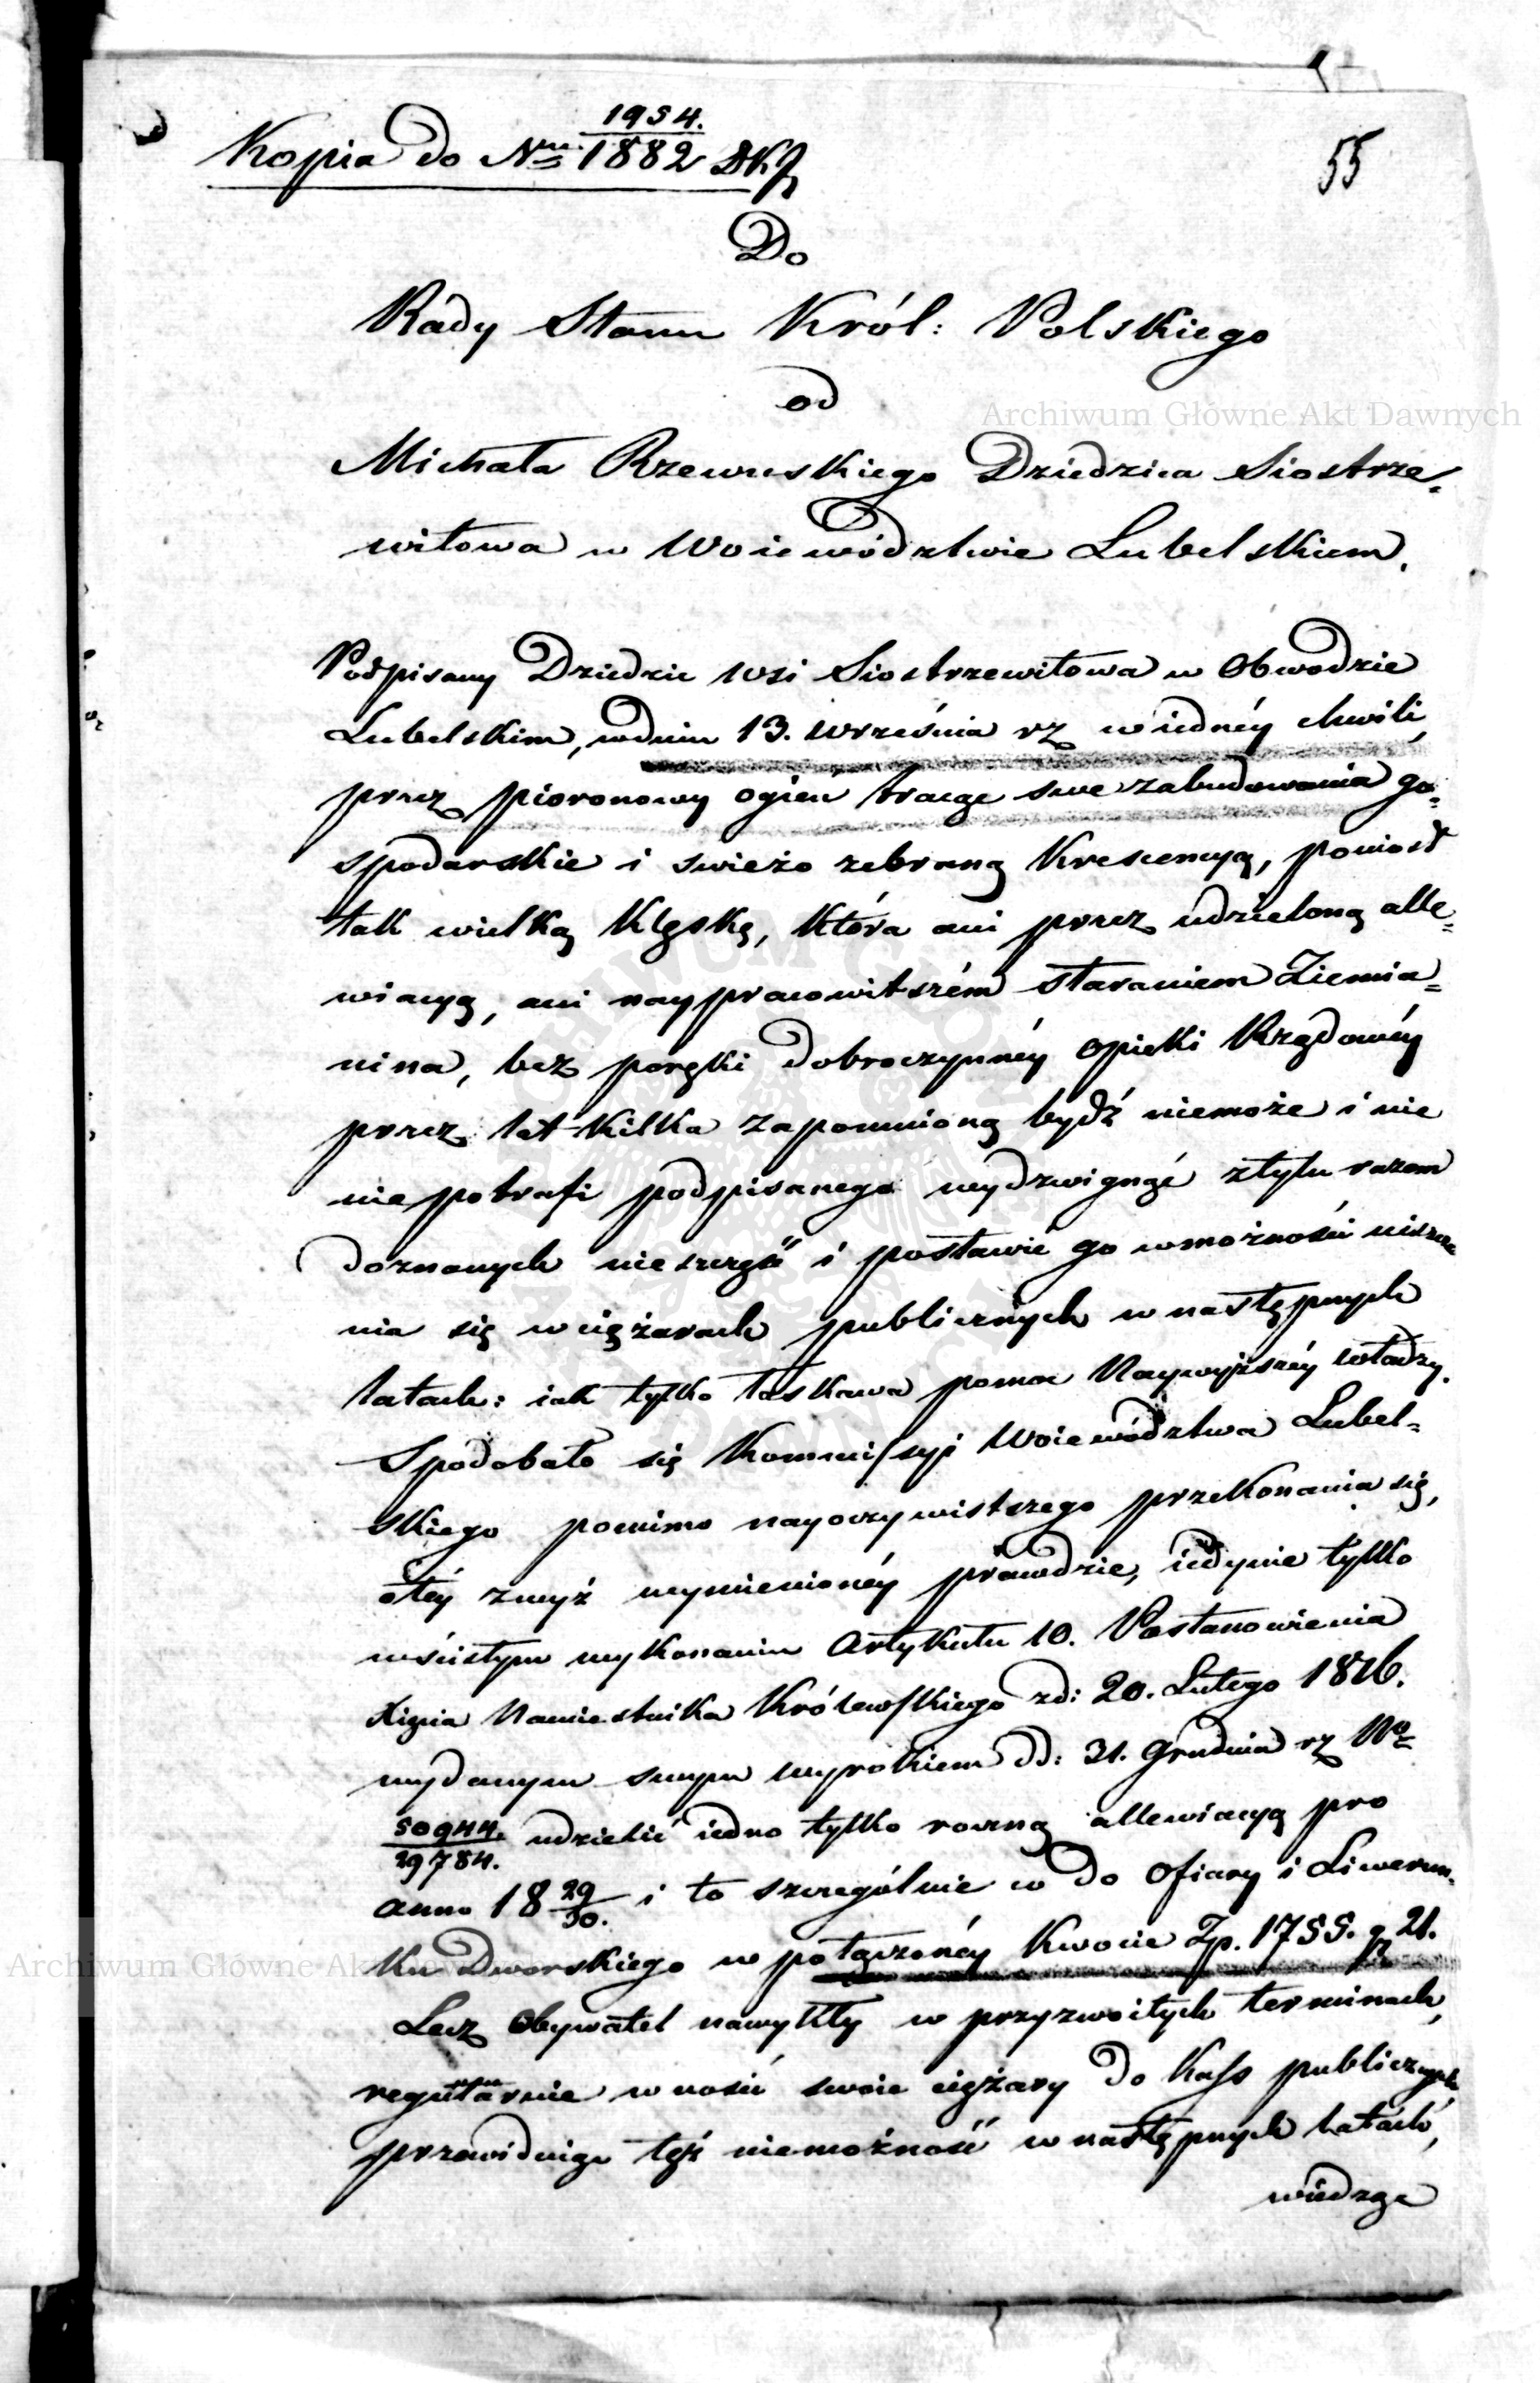 1954.
Kopia do Nru 1882 DKJ
55
Do
Rady Stanu Król: Polskiego
od
Archiwum Główne Akt Dawnych
Michała Rzewuskiego Dziedzica Siostrze-
witowa w Woiewództwie Lubelskiem.
Podpisany Dziedzic wsi Siostrzewitowa w Obwodzie
Lubelskim, wdniu 13. września rz w iednéy chwili,
przez pioronowy ogień tracąc swe zabudowania go-
spodarskie i swieżo zebraną Krescencyą, poniosł
tak wielką Klęskę, Która ani przez udzieloną alle-
wiacyą, ani naypracowitszém staraniem Ziemia-
nina, bez poręki dobroczynnéy opieki Rządowéy
przez lat kilka zapomnioną bydź niemoże i nie
niepotrafi podpisanego wydzwignąć ztylu razem
doznanych nieszczęść i postawić go wmożności uiszcze
nia się w ciężarach publicznych w następnych
latach: iak tylko łaskawa pomoc Naywyższéy władzy.
Spodobało się Kommissyi Woiewództwa Lubel-
skiego pomimo nayoczywistszego przekonania się,
otéy zwyż wymienionéy prawdzie, iedynie tylko
wścisłym wykonaniu Artykułu 10. Postanowienia
Xięcia Namiestnika Królewskiego zd: 20. Lutego 1816.
wydanym swym wyrokiem dd: 31. Grudnia rz No
50944.
29784. udzielić iedno tylko roczną allewiacyą pro
anno 18 29/30. i to szczególnie w do Ofiary i Liwerun-
Archiwum Główne Akt Dawnych
ku Dworskiego w połączonéy Kwocie Zp. 1755. gr 21.
Lecz Obywatel nawykły w przyzwoitych terminach,
regularnie wnosić swoie ciężary do Kass publicznych
przewidując tęż niemożność w następnych latach,
wiedząc